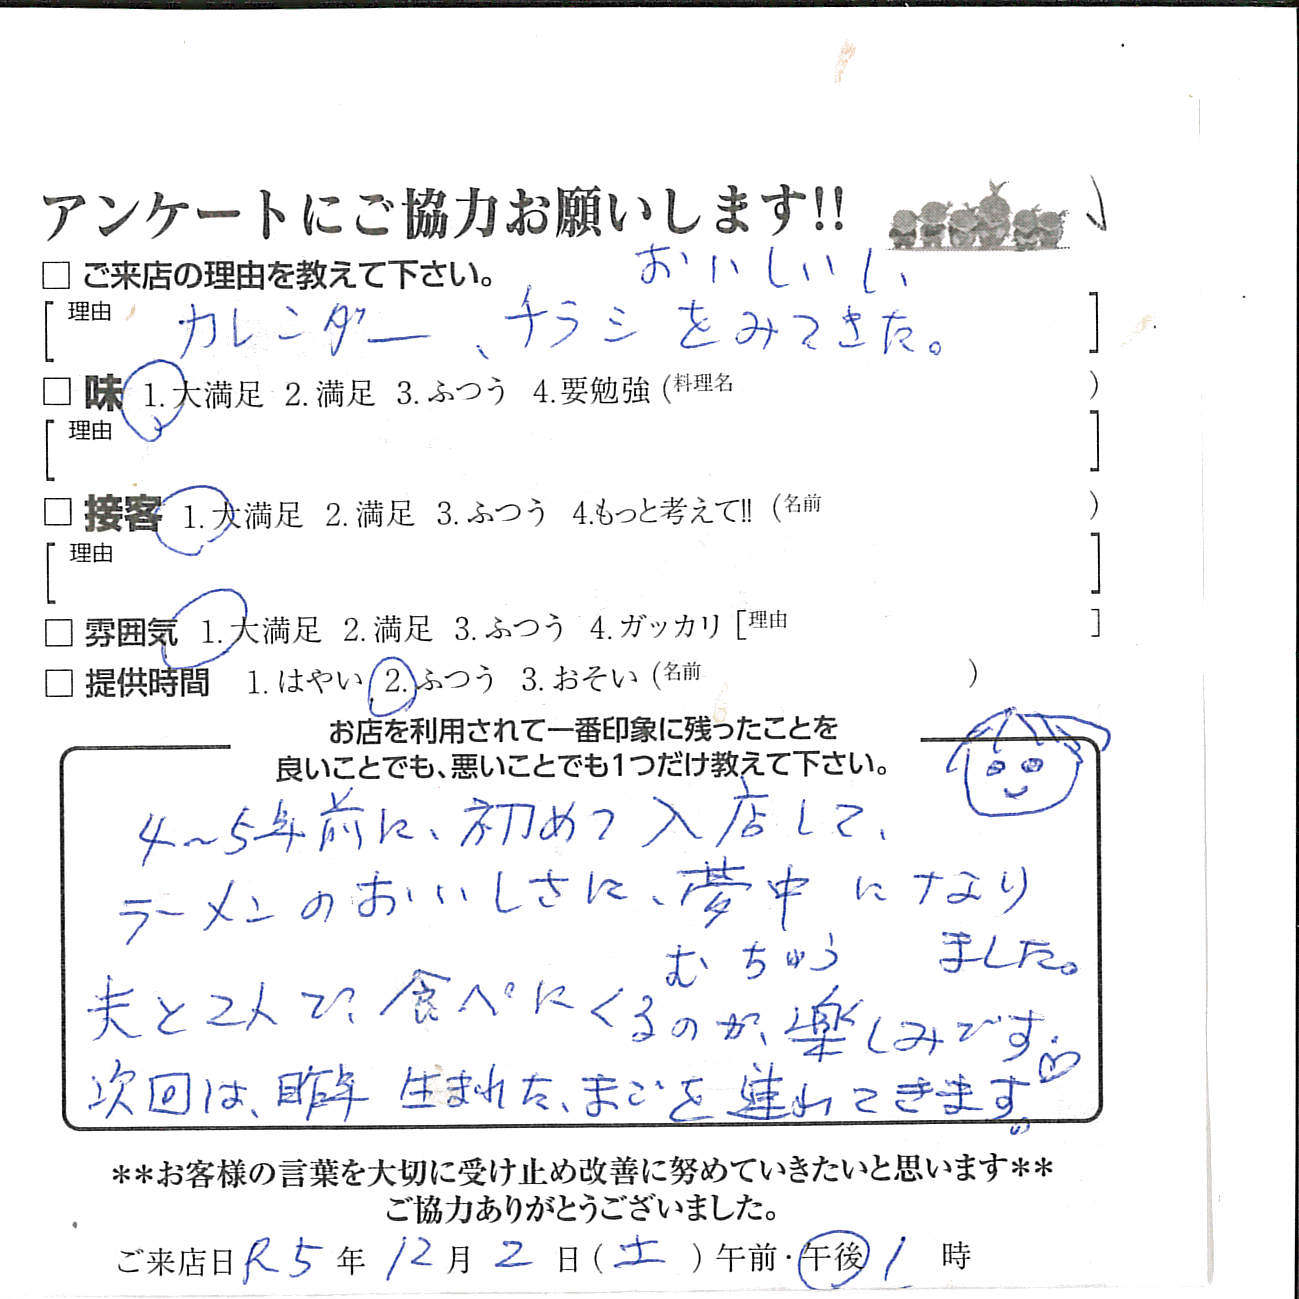 アンケートにご協力お願いします!!
□ ご来店の理由を教えて下さい。
おいしいし、
[理由 カレンダー、チラシをみてきた。]
□ 味 1.大満足 2.満足 3.ふつう 4.要勉強 (料理名 )
[理由 ]
□ 接客 1.大満足 2.満足 3.ふつう 4.もっと考えて!! (名前 )
[理由 ]
□ 雰囲気 1.大満足 2.満足 3.ふつう 4.ガッカリ [理由 ]
□ 提供時間 1.はやい 2.ふつう 3.おそい (名前 )
お店を利用されて一番印象に残ったことを
良いことでも、悪いことでも1つだけ教えて下さい。
4〜5年前に、初めて入店して、
ラーメンのおいしさに、夢中になり
むちゅう ました。
夫と2人で、食べにくるのが、楽しみです
次回は、昨年生まれた、まごを連れてきます。
**お客様の言葉を大切に受け止め改善に努めていきたいと思います**
ご協力ありがとうございました。
ご来店日R5年12月2日(土)午前・午後1時